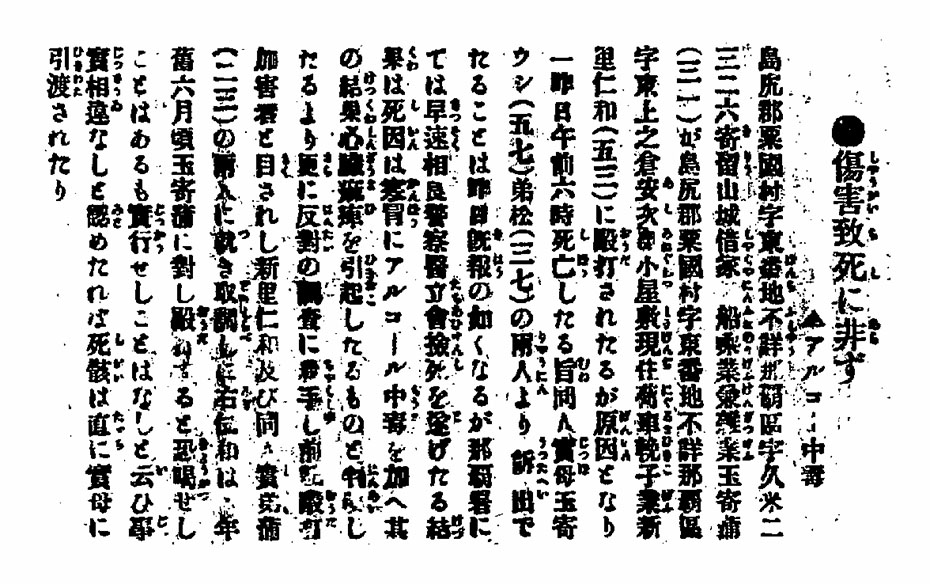 ●傷害致死に非ず
▲アルコール中毒
島尻郡粟國村字東番地不詳那覇區字久米二
三二六寄留山城借家 船乘業兼雜業玉寄蒲
(三一)が島尻郡粟國村字東番地不詳那覇區
字東上之倉安次嶺小屋敷現住荷車輓子業新
里仁和(五三)に毆打されたるが原因となり
一昨日午前六時死亡したる旨同人實母玉寄
ウシ(五七)弟松(二七)の兩人より訴出で
たることは昨日既報の如くなるが那覇署に
ては早速相良警察醫立會撿死を遂げたる結
果は死因は寒冒にアルコール中毒を加へ其
の結果心臟痲痺を引起したるものと判明し
たるより更に反對の調査に着手し前記毆打
加害者と目されし新里仁和及び同人實弟蒲
(二三)の兩人に就き取調しに右仁和は 年
舊六月頃玉寄蒲に對し毆打すると恐喝せし
ことはあるも實行せしことはなしと云ひ事
實相違なしと認めたれば死骸は直に實母に
引渡されたり